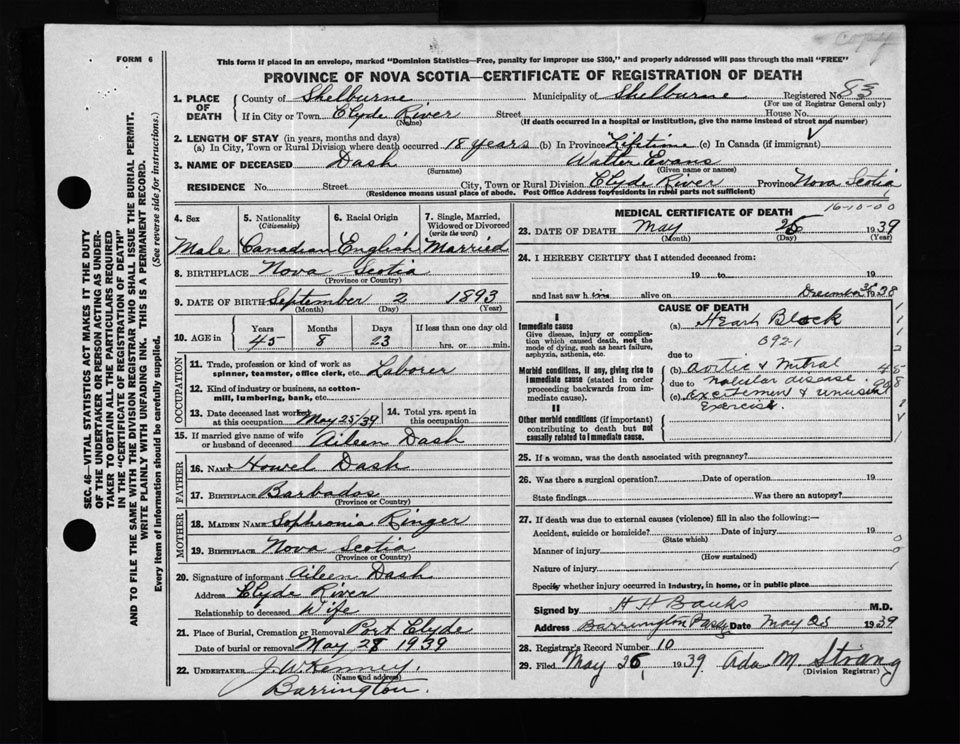 copy
FORM 6
This form if placed in an envelope, marked "Dominion Statistics—Free, penalty for improper use $300," and properly addressed will pass through the mail "FREE"
PROVINCE OF NOVA SCOTIA—CERTIFICATE OF REGISTRATION OF DEATH
1. PLACE OF DEATH
County of Shelburne Municipality of Shelburne Registered No. 83
(For use of Registrar General only)
If in City or Town Clyde River Street House No.
(Name) (If death occurred in a hospital or institution, give the name instead of street and number)
2. LENGTH OF STAY (in years, months and days)
(a) In City, Town or Rural Division where death occurred 18 years (b) In Province Lifetime (c) In Canada (if immigrant) ✓
3. NAME OF DECEASED Dash Walter Evans
(Surname) (Given name or names)
RESIDENCE No. Street City, Town or Rural Division Clyde River Province Nova Scotia
(Residence means usual place of abode. Post Office Address for residents in rural parts not sufficient)
4. Sex
Male
5. Nationality
(Citizenship)
Canadian
6. Racial Origin
English
7. Single, Married, Widowed or Divorced
(write the word)
Married
8. BIRTHPLACE Nova Scotia
(Province or Country)
9. DATE OF BIRTH September 2 1893
(Month) (Day) (Year)
10. AGE in
Years Months Days If less than one day old
45 8 23 hrs. or min.
OCCUPATION
11. Trade, profession or kind of work as
spinner, teamster, office clerk, etc. Laborer
12. Kind of industry or business, as cotton-
mill, lumbering, bank, etc.
13. Date deceased last worked
at this occupation May 25/39
14. Total yrs. spent in
this occupation
15. If married give name of wife
or husband of deceased Aileen Dash
FATHER
16. NAME Howel Dash
17. BIRTHPLACE Barbados
(Province or Country)
MOTHER
18. MAIDEN NAME Sophronia Ringer
19. BIRTHPLACE Nova Scotia
(Province or Country)
20. Signature of informant Aileen Dash
Address Clyde River
Relationship to deceased Wife
21. Place of Burial, Cremation or Removal Port Clyde
Date of burial or removal May 28 1939
22. UNDERTAKER J. W. Kenney,
(Name and address)
Barrington.
MEDICAL CERTIFICATE OF DEATH 16-10-00
23. DATE OF DEATH May 25 1939
(Month) (Day) (Year)
24. I HEREBY CERTIFY that I attended deceased from:
19 to 19
and last saw him alive on December 1938
CAUSE OF DEATH
I
Immediate cause
Give disease, injury or complica-
tion which caused death, not the
mode of dying, such as heart failure,
asphyxia, asthenia, etc.
(a) Heart Block
092-1
due to
Morbid conditions, if any, giving rise to
immediate cause (stated in order
proceeding backwards from im-
mediate cause).
(b) aortic & mitral
due to valvular disease.
(c) excitement & unusual
exercise.
II
Other morbid conditions (if important)
contributing to death but not
causally related to immediate cause.
25. If a woman, was the death associated with pregnancy?
26. Was there a surgical operation? Date of operation 19
State findings Was there an autopsy?
27. If death was due to external causes (violence) fill in also the following:—
Accident, suicide or homicide? Date of injury 19
(State which)
Manner of injury
(How sustained)
Nature of injury
Specify whether injury occurred in industry, in home, or in public place
Signed by H H Banks M.D.
Address Barrington Passg Date May 25 1939
28. Registrar's Record Number 10
29. Filed May 26, 1939 Ada M. Strang
(Division Registrar)
SEC. 46—VITAL STATISTICS ACT MAKES IT THE DUTY
OF THE UNDERTAKER OR PERSON ACTING AS UNDER-
TAKER TO OBTAIN ALL THE PARTICULARS REQUIRED
IN THE "CERTIFICATE OF REGISTRATION OF DEATH"
AND TO FILE THE SAME WITH THE DIVISION REGISTRAR WHO SHALL ISSUE THE BURIAL PERMIT.
WRITE PLAINLY WITH UNFADING INK. THIS IS A PERMANENT RECORD.
Every item of information should be carefully supplied. (See reverse side for instructions.)